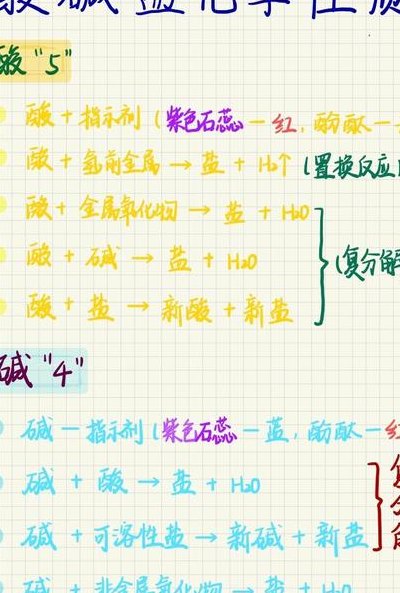 酸碱盐化学性质
酸"5"
酸 + 指示剂 (紫色石蕊 — 红, 酚酞 —
酸 + 氢前金属 → 盐 + H₂↑ (置换反应
酸 + 金属氧化物 → 盐 + H₂O
酸 + 碱 → 盐 + H₂O (复分解
酸 + 盐 → 新酸 + 新盐
碱"4"
碱 — 指示剂 (紫色石蕊 — 蓝, 酚酞 — 红
碱 + 酸 → 盐 + H₂O
碱 + 可溶性盐 → 新碱 + 新盐
碱 + 非金属氧化物 → 盐 + H₂O